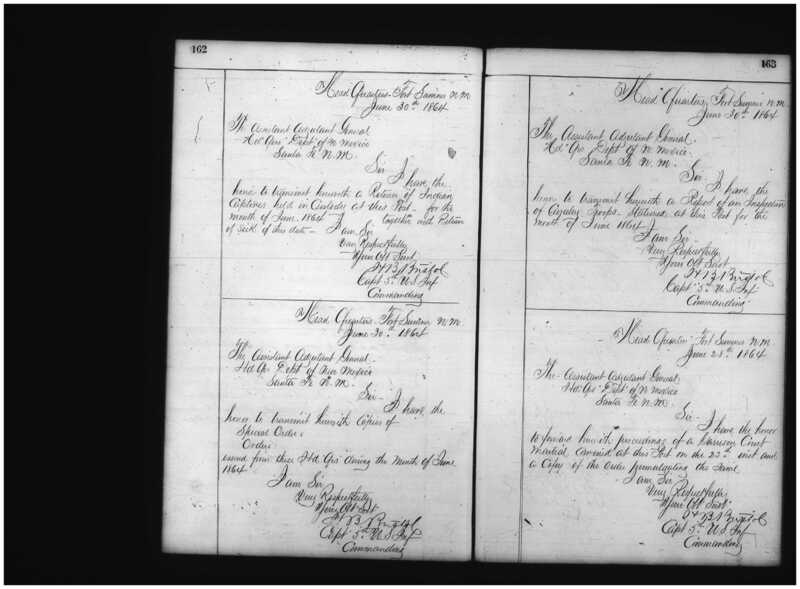 162
Head Quarters Fort Sumner N.M.
June 30th 1864
The Assistant Adjutant General
Hd Qrs Dept of N Mexico
Santa Fe N.M.
Sir I have the
honor to transmit herewith a Return of Indian
Captives held in Custody at this Post for the
month of June 1864 together with Return
of Sick of this date
I am Sir
Very Respectfully
Your Obt Servt
H B Bristol
Capt 5th U.S. Inf
Commanding
Head Quarters Fort Sumner N.M.
June 30th 1864
The Assistant Adjutant General
Hd Qrs Dept of New Mexico
Santa Fe N.M.
Sir I have the
honor to transmit herewith Copies of
Special Orders
Orders
issued from these Hd Qrs during the Month of June
1864
I am Sir
Very Respectfully
Your Obt Servt
H B Bristol
Capt 5th U.S. Inf
Commanding
163
Head Quarters Fort Sumner N.M.
June 30th 1864
The Assistant Adjutant General
Hd Qrs Dept of N Mexico
Santa Fe N.M.
Sir I have the
honor to transmit herewith a Report of an Inspection
of Cavalry Troops Stationed at this Post for the
month of June 1864
I am Sir
Very Respectfully
Your Obt Servt
H B Bristol
Capt 5th U.S. Inf
Commanding
Head Quarters Fort Sumner N.M.
June 28th 1864
The Assistant Adjutant General
Hd Qrs Dept of N Mexico
Santa Fe N.M.
Sir I have the honor
to forward herewith proceedings of a Garrison Court
Martial Convened at this Post on the 23d inst and
a Copy of the Order promulgating the Same
I am Sir
Very Respectfully
Your Obt Servt
H B Bristol
Capt 5th U.S. Inf
Commanding